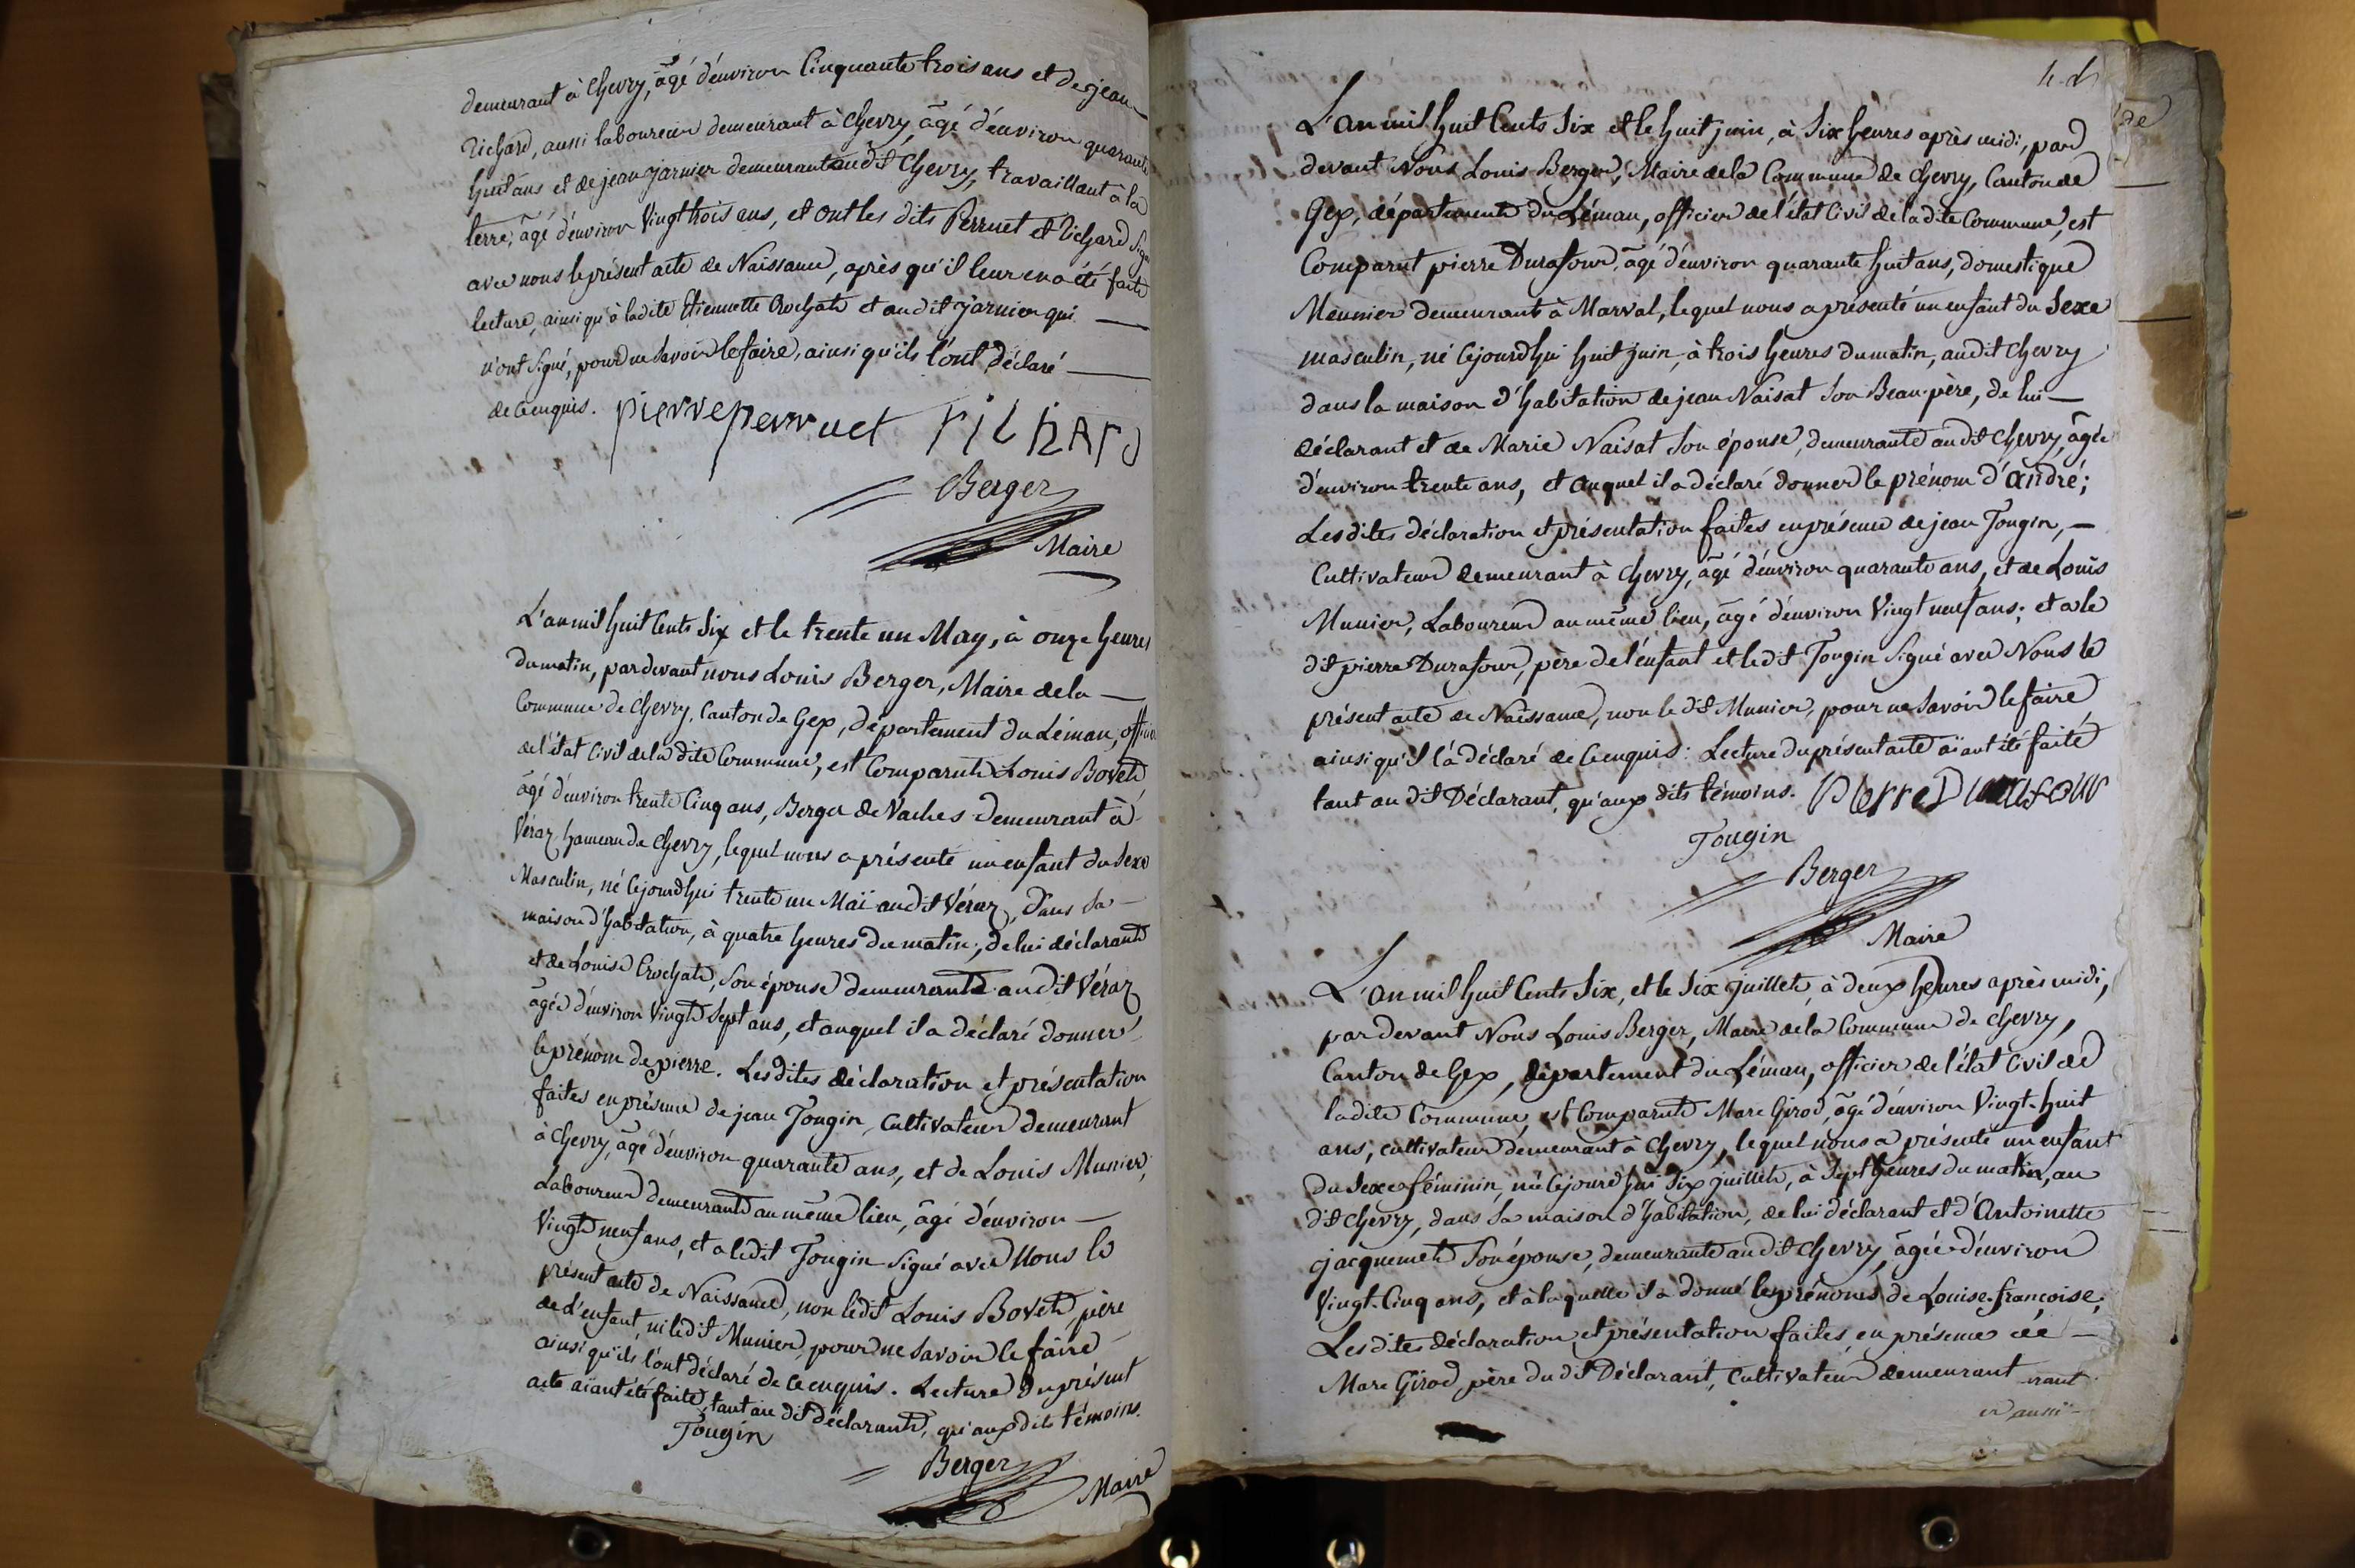 demeurant à Chevry, âgé d'environ Cinquante trois ans et de jean
Richard, aussi laboureur demeurant à Chevry, âgé d'environ quarante
huit ans et de jean jarnier demeurant audit Chevry, travaillant à la
terre, âgé d'environ Vingt trois ans, et ont les dits Perruet et Richard signé
avec nous le présent acte de Naissance, après qu'il leur en a été faite
lecture, ainsi qu'à ladite Etiennette Crochate et au dit jarnier qui
n'ont signé, pour ne savoir le faire, ainsi qu'ils l'ont déclaré
de ce enquis. pierre perruet richard
Berger
Maire
L'an mil huit Cents Six et le trente un May, à onze heures
du matin, par devant nous Louis Berger, Maire de la
Commune de Chevry, Canton de Gex, département du Léman, officier
de l'état Civil de la dite Commune, est Comparut Louis Bovet
âgé d'environ trente Cinq ans, Berger de Vaches demeurant à
Véraz hameau de Chevry, lequel nous a présenté un enfant du Sexe
Masculin, né Cejourdhui trente un Maï audit Véraz, dans sa
maison d'habitation, à quatre heures du matin, de lui déclarant
et de Louise Crochate, Son épouse demeurante audit Véraz
âgée d'environ Vingt Sept ans, et auquel il a déclaré donner
le prénom de pierre. Lesdites déclaration et présentation
faites en présence de jean Tougin, Cultivateur demeurant
à Chevry, âgé d'environ quarante ans, et de Louis Munier,
Laboureur demeurant au même lieu, âgé d'environ
Vingt neuf ans, et a ledit Tougin Signé avec Nous le
présent acte de Naissance, non ledit Louis Bovet, père
de l'enfant, ni ledit Munier, pour ne Savoir le faire
ainsi qu'ils l'ont déclaré de ce enquis. Lecture du présent
acte aïant été faite, tant au dit déclarant, qu'aux dits témoins.
Tougin
Berger
Maire
L'an mil huit Cents Six et le huit juin, à Six heures après midi, par
devant Nous Louis Berger, Maire de la Commune de Chevry, Canton de
Gex, département du Léman, officier de l'état Civil de la dite Commune, est
Comparut pierre Durafour, âgé d'environ quarante huit ans, domestique
Meunier demeurant à Marval, lequel nous a présenté un enfant du Sexe
masculin, né Cejourdhui huit juin, à trois heures du matin, audit Chevry
dans la maison d'habitation de jean Naisat Son Beau-père, de lui
déclarant et de Marie Naisat Son épouse, demeurante audit Chevry, âgée
d'environ trente ans, et auquel il a déclaré donner le prénom d'andré;
Lesdites déclaration et présentation faites en présence de jean Tougin,
Cultivateur demeurant à Chevry, âgé d'environ quarante ans, et de Louis
Munier, Laboureur au même lieu, âgé d'environ Vingt neuf ans; et a le
dit pierre Durafour, père de l'enfant et ledit Tougin Signé avec Nous le
présent acte de Naissance, non le dit Munier, pour ne Savoir le faire,
ainsi qu'il l'a déclaré de ce enquis: Lecture du présent acte aïant été faite
tant au dit Déclarant, qu'aux dits témoins. Pierre Durafour
Tougin
Berger
Maire
L'an mil huit Cents Six, et le Six juillet, à deux heures après midi,
par devant Nous Louis Berger, Maire de la Commune de Chevry,
Canton de Gex, département du Léman, officier de l'état Civil de
ladite Commune, est Comparut Marc Girod, âgé d'environ Vingt-huit
ans, cultivateur demeurant à Chevry, lequel nous a présenté un enfant
du Sexe féminin, née Cejourd'hui Six juillet, à Sept heures du matin, au
dit Chevry, dans Sa maison d'habitation, de lui déclarant et d'Antoinette
jacquemet Son épouse, demeurante audit Chevry, âgée d'environ
Vingt-Cinq ans, et à laquelle il a donné les prénoms de Louise françoise;
Lesdites déclaration et présentation faites, en présence de
Marc Girod père du dit Déclarant, Cultivateur demeurant
rant
aussi
de